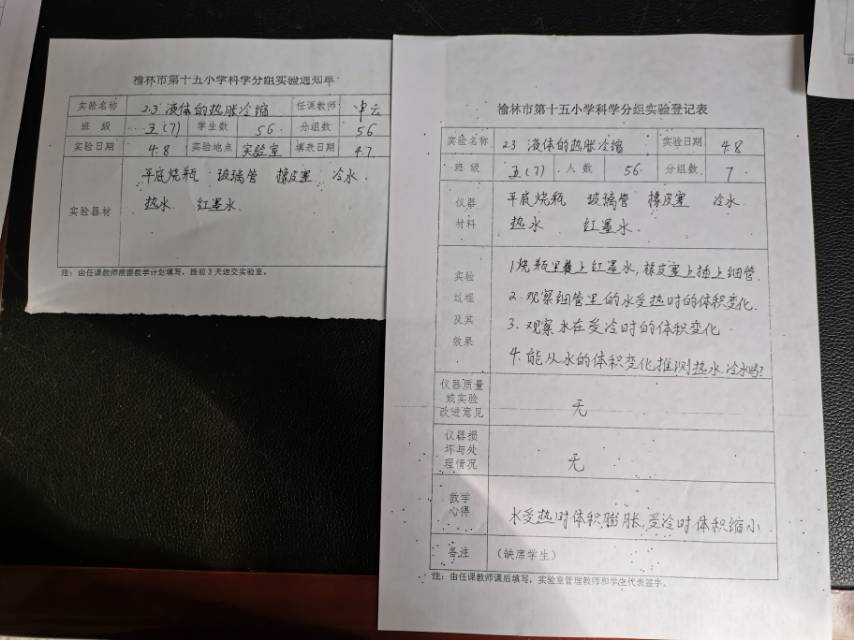 榆林市第十五小学科学分组实验通知单
实验名称 2.3 液体的热胀冷缩 任课教师
班 级 五(7) 学生数 56. 分组数 56
实验日期 4.8 实验地点 实验室 填表日期 4.7
实验器材
平底烧瓶 玻璃管 橡皮塞 冷水.
热水. 红墨水.
注：由任课教师根据教学计划填写，提前3天送交实验室。
榆林市第十五小学科学分组实验登记表
实验名称 2.3 液体的热胀冷缩 实验日期 4.8
班 级 五(7). 人 数 56. 分组数 7.
仪器材料
平底烧瓶 玻璃管 橡皮塞 冷水
热水 红墨水.
实验过程及其效果
1.烧瓶里 上红墨水,橡皮塞上插上细管.
2.观察细管里的水受热时的体积变化.
3.观察水在受冷时的体积变化
4.能从水的体积变化推测热水.冷水吗?
仪器质量或实验改进意见 无
仪器损坏与处理情况 无
教学心得 水受热时体积膨胀,受冷时体积缩小.
备注 （缺席学生）
注：由任课教师课后填写，实验室管理教师和学生代表签字。